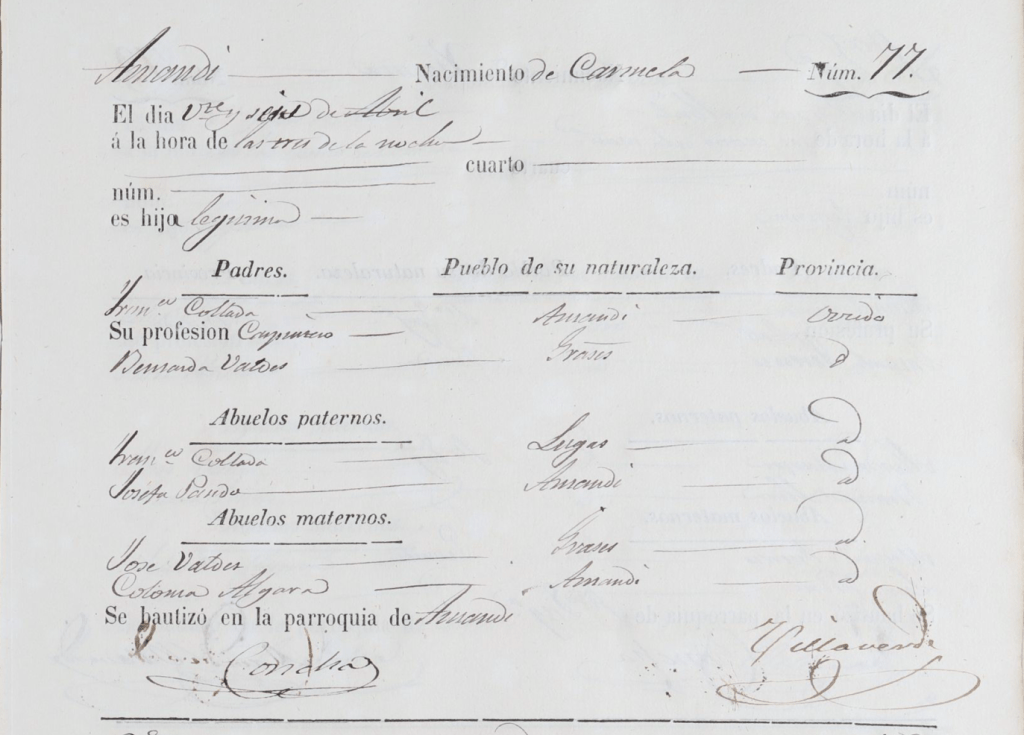 Amandi Nacimiento de Carmela Núm. 77.
El dia Vte y seis de Abril
á la hora de las tres de la noche
cuarto
núm.
es hija legitima
Padres. Pueblo de su naturaleza. Provincia.
Franco Collada Amandi Oviedo
Su profesion
Bernarda Valdes Grases d
Abuelos paternos.
Franco Collada Lugas d
Josefa Pando Amandi d
Abuelos maternos.
Jose Valdes Grases d
Colonia Algara Amandi d
Se bautizó en la parroquia de Amandi
Villaverde